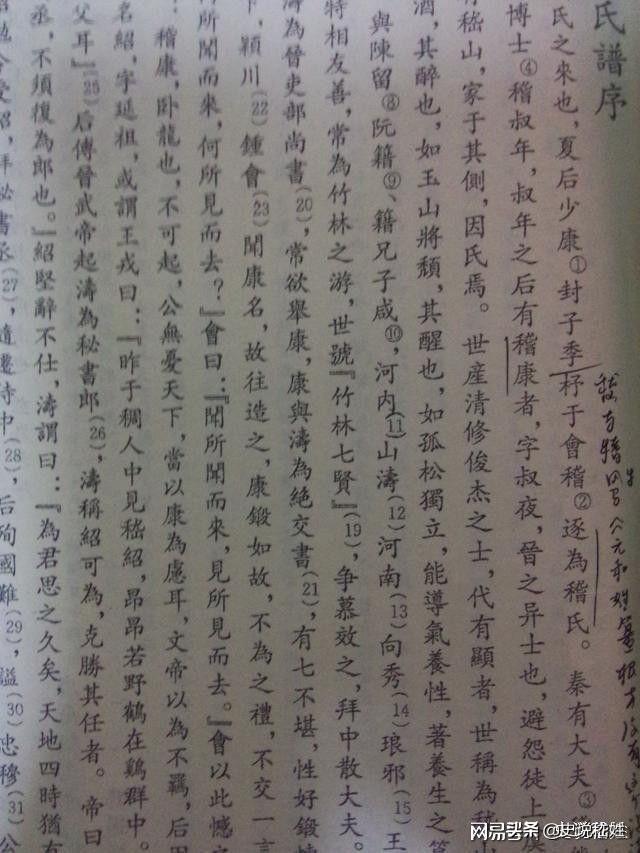 氏譜序
氏之來也，夏后少康①封子季杼于會稽②逐為稽氏。秦有大夫③
博士④稽叔年，叔年之后有稽康者，字叔夜，晉之异士也，避怨徒上
嵇山，家于其側，因氏焉。世産清修俊杰之士，代有顯者，世稱為
酒，其醉也，如玉山將頹，其醒也，如孤松獨立，能導氣養性，著養生之
與陳留⑧阮籍⑨、籍兄子咸⑩，河内(11)山濤(12)河南(13)向秀(14)琅邪(15)王
特相友善，常為竹林之游，世號『竹林七賢』(19)，争慕效之，拜中散大夫。
濤為晉吏部尚書(20)，常欲舉康，康與濤為絶交書(21)，有七不堪，性好鍛
下，穎川(22)鍾會(23)聞康名，故往造之，康鍛如故，不為之禮，不交一言
何所聞而來，何所見而去？』會曰：『聞所聞而來，見所見而去。』會以此憾
：稽康，卧龍也，不可起，公無憂天下，當以康為慮耳，文帝以為不羈，后
名紹，字延祖，或謂王戎曰：『昨于稠人中見嵇紹，昂昂若野鶴在鷄群中。
父耳』(25)后傳晉武帝起濤為秘書郎(26)，濤稱紹可為，克勝其任者。帝曰
丞，不須復為郎也。』紹堅辭不仕，濤謂曰：『為君思之久矣，天地四時猶有
拜秘書丞(27)，遺遷侍中(28)，后殉國難(29)，謚(30)忠穆(31)公
网易号
史说嵇姓